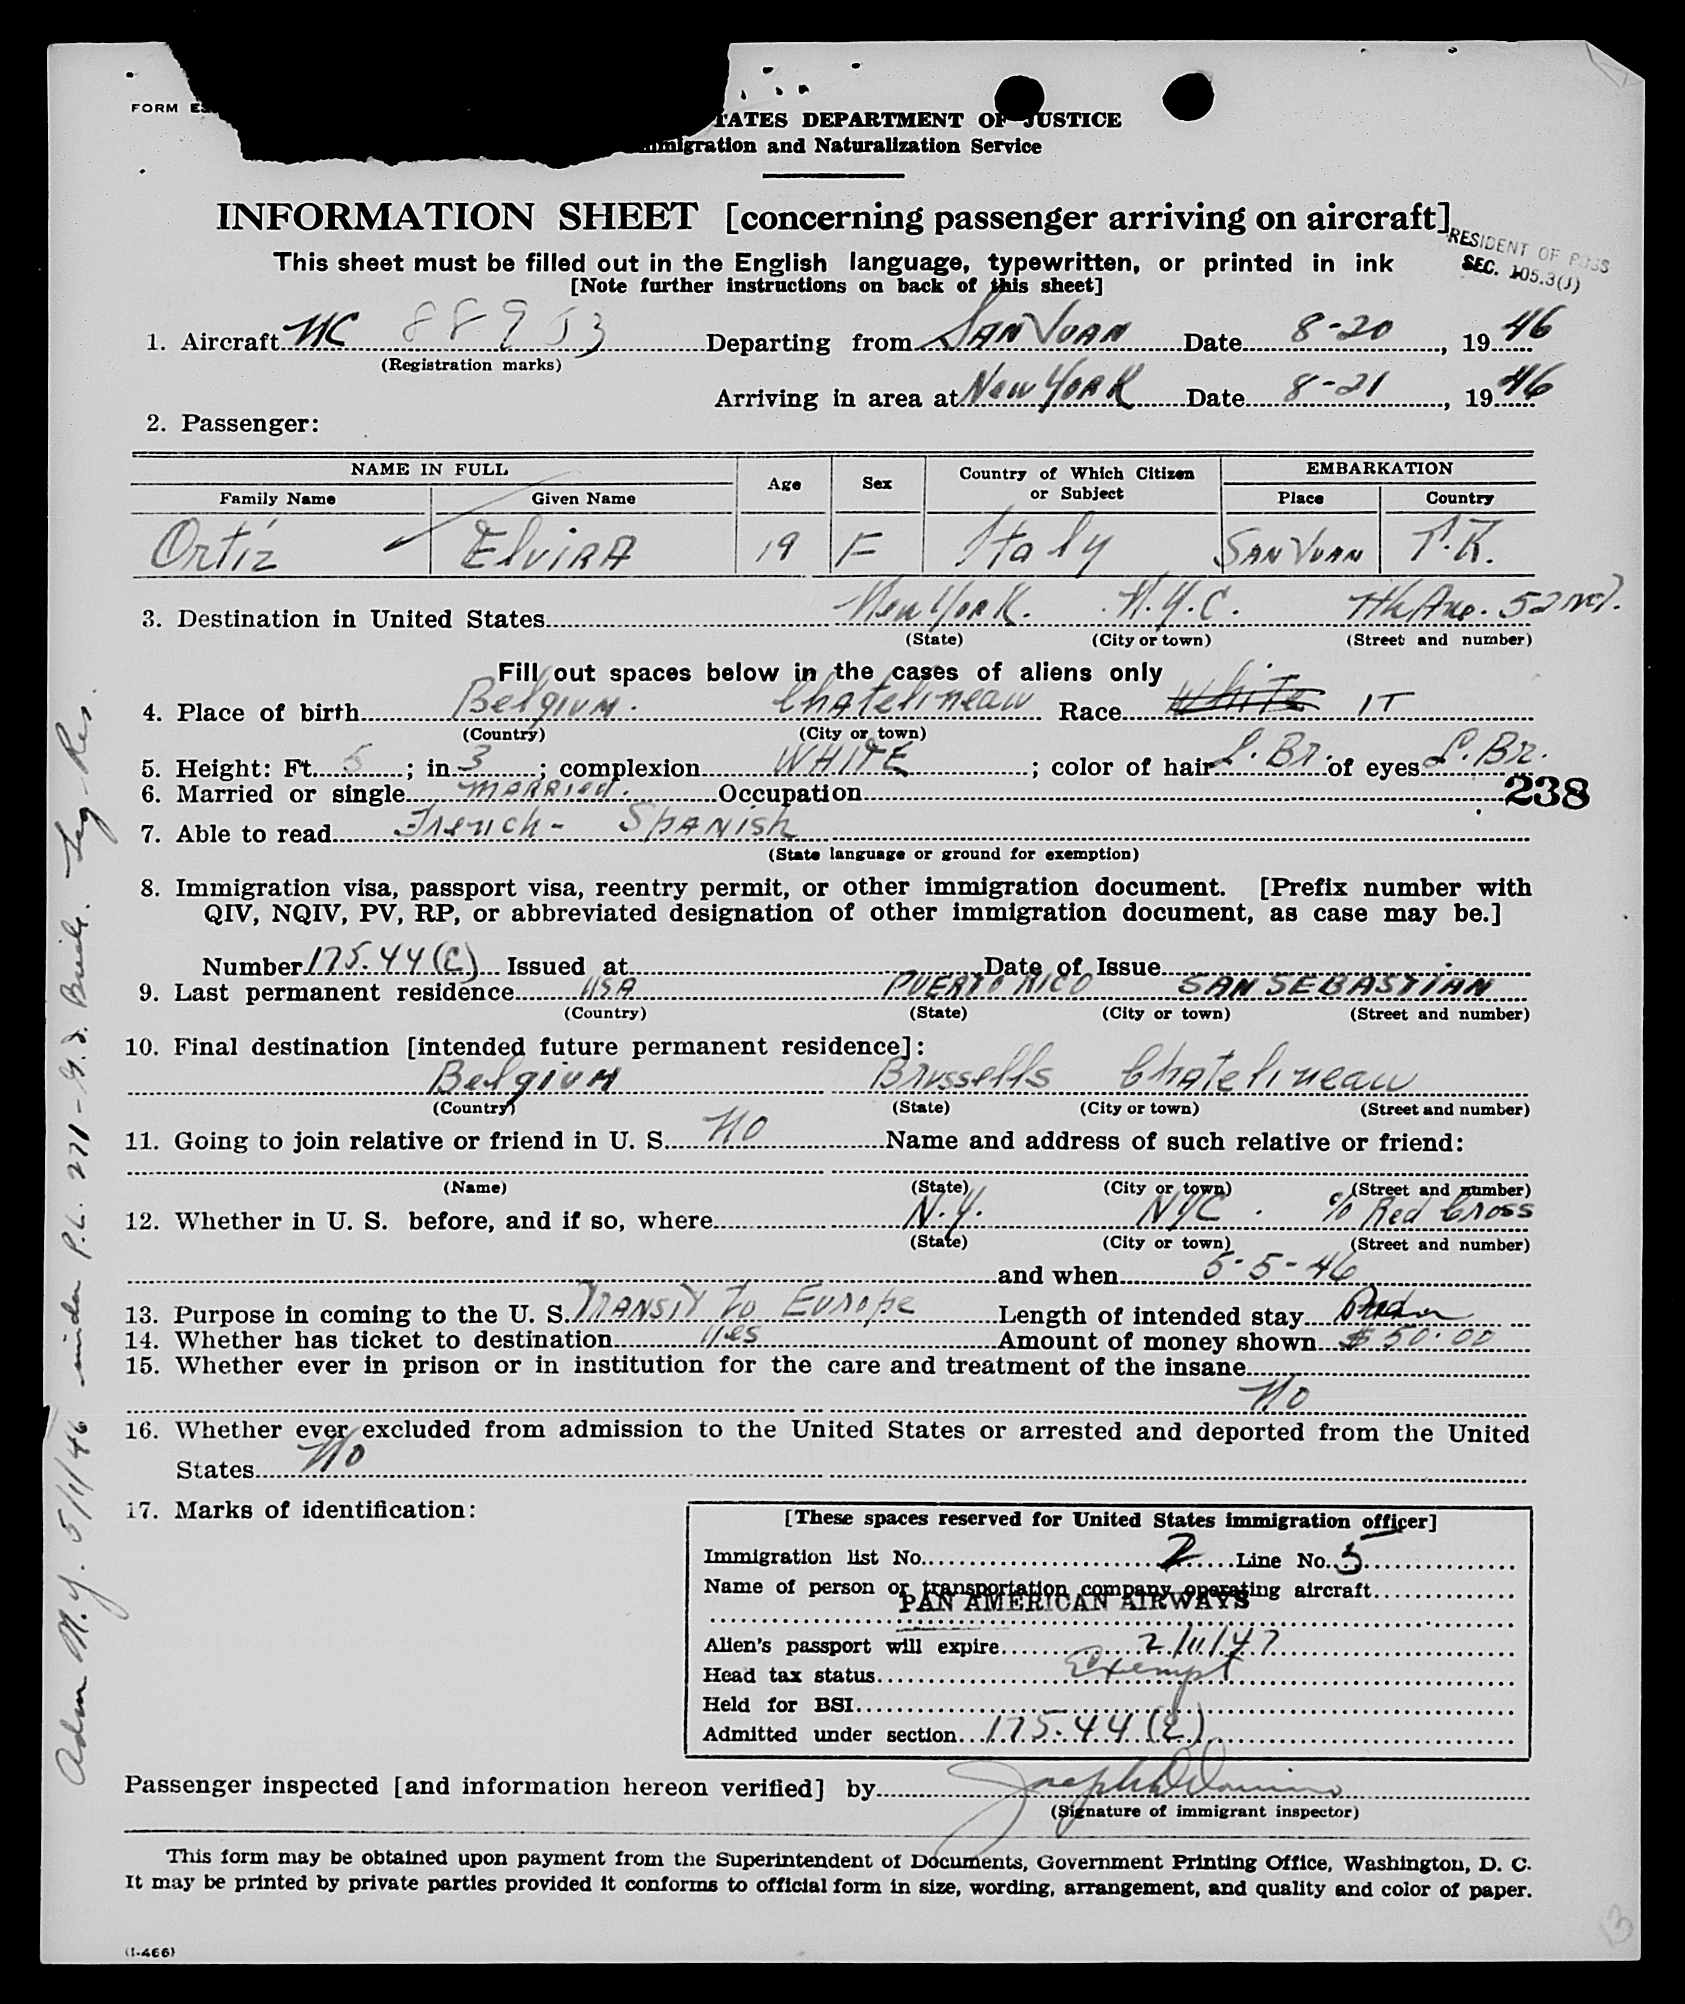 FORM
STATES DEPARTMENT OF JUSTICE
Immigration and Naturalization Service
INFORMATION SHEET [concerning passenger arriving on aircraft]
RESIDENT OF POSS
SEC. 105.3(J)
This sheet must be filled out in the English language, typewritten, or printed in ink
[Note further instructions on back of this sheet]
1. Aircraft NC 88953 Departing from SAN JUAN Date 8-20, 1946
(Registration marks)
Arriving in area at New York Date 8-21, 1946
2. Passenger:
NAME IN FULL Age Sex Country of Which Citizen or Subject EMBARKATION
Family Name Given Name Place Country
Ortíz Elvira 19 F Italy SAN JUAN P.R.
3. Destination in United States New York. N.Y.C. 7th Ave. 52
(State) (City or town) (Street and number)
Fill out spaces below in the cases of aliens only
4. Place of birth Belgium. Chatelineau Race White IT
(Country) (City or town)
5. Height: Ft. 5; in. 3; complexion WHITE; color of hair L. Br. of eyes L. Br.
6. Married or single married. Occupation
238
7. Able to read French - Spanish
(State language or ground for exemption)
8. Immigration visa, passport visa, reentry permit, or other immigration document. [Prefix number with
QIV, NQIV, PV, RP, or abbreviated designation of other immigration document, as case may be.]
Number 175.44(E) Issued at Date of Issue
9. Last permanent residence USA PUERTO RICO SAN SEBASTIAN
(Country) (State) (City or town) (Street and number)
10. Final destination [intended future permanent residence]:
Belgium Brussells Chatelineau
(Country) (State) (City or town) (Street and number)
11. Going to join relative or friend in U. S. No Name and address of such relative or friend:
(Name) (State) (City or town) (Street and number)
12. Whether in U. S. before, and if so, where N.Y. NYC. c/o Red Cross
(State) (City or town) (Street and number)
and when 5-5-46
13. Purpose in coming to the U. S. Transit to Europe Length of intended stay
14. Whether has ticket to destination yes Amount of money shown $50.00
15. Whether ever in prison or in institution for the care and treatment of the insane
No
16. Whether ever excluded from admission to the United States or arrested and deported from the United
States No
17. Marks of identification:
[These spaces reserved for United States immigration officer]
Immigration list No. 2 Line No. 5
Name of person or transportation company operating aircraft
PAN AMERICAN AIRWAYS
Alien's passport will expire 2/11/47
Head tax status Exempt
Held for BSI
Admitted under section 175.44(E)
Passenger inspected [and information hereon verified] by
(Signature of immigrant inspector)
This form may be obtained upon payment from the Superintendent of Documents, Government Printing Office, Washington, D. C.
It may be printed by private parties provided it conforms to official form in size, wording, arrangement, and quality and color of paper.
(I-466)
13
Adm N.Y. 5/1/46 under P.L. 271 - G.I. Bride. Leg Res.